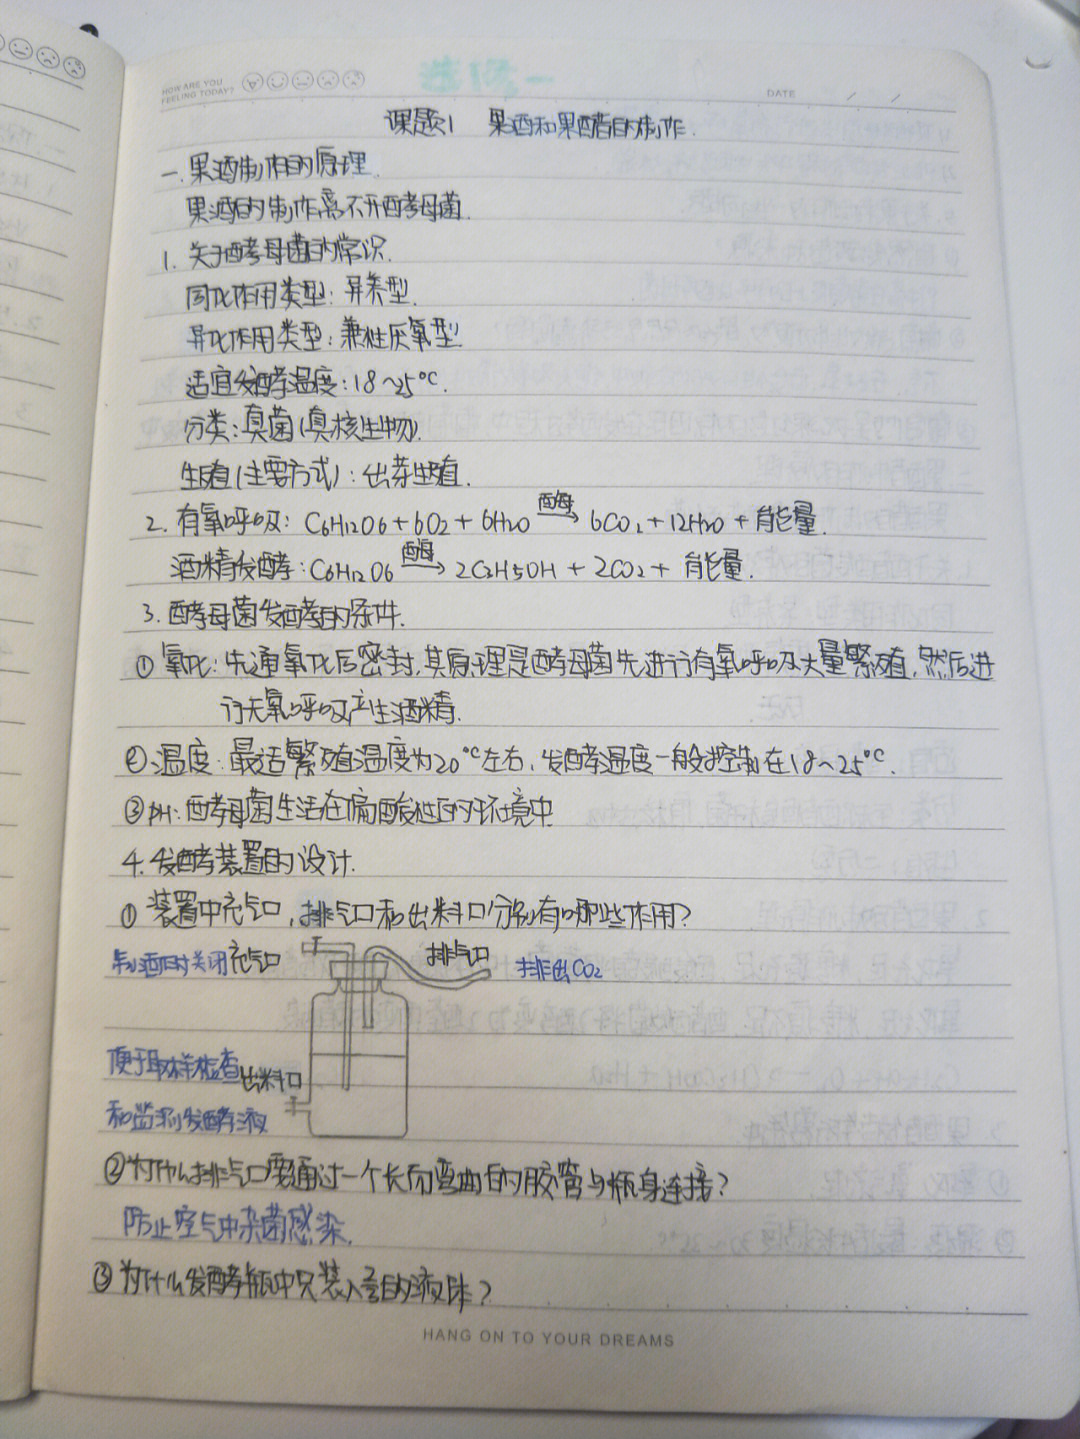 HOW ARE YOU
FEELING TODAY?
选修一
DATE / /
课题1 果酒和果醋的制作.
一.果酒制作的原理.
果酒的制作离不开酵母菌.
1. 关于酵母菌的常识.
同化作用类型: 异养型.
异化作用类型: 兼性厌氧型
适宜发酵温度: 18~25°C.
分类: 真菌(真核生物).
生殖(主要方式): 出芽生殖.
2. 有氧呼吸: C6H12O6 + 6O2 + 6H2O 酶→ 6CO2 + 12H2O + 能量.
酒精发酵: C6H12O6 酶→ 2C2H5OH + 2CO2 + 能量.
3. 酵母菌发酵的条件.
① 氧气: 先通氧气后密封,其原理是酵母菌先进行有氧呼吸大量繁殖,然后进
行无氧呼吸产生酒精.
②.温度: 最适繁殖温度为20°C左右, 发酵温度一般控制在18~25°C.
③ pH: 酵母菌生活在偏酸性的环境中
4. 发酵装置的设计.
① 装置中充气口, 排气口和出料口分别有哪些作用?
制酒时关闭 充气口 排气口 排出CO2
便于取样检查 出料口
和监测发酵液
② 为什么排气口要通过一个长而弯曲的胶管与瓶身连接?
防止空气中杂菌感染.
③ 为什么发酵瓶中只装入2/3的液体?
HANG ON TO YOUR DREAMS